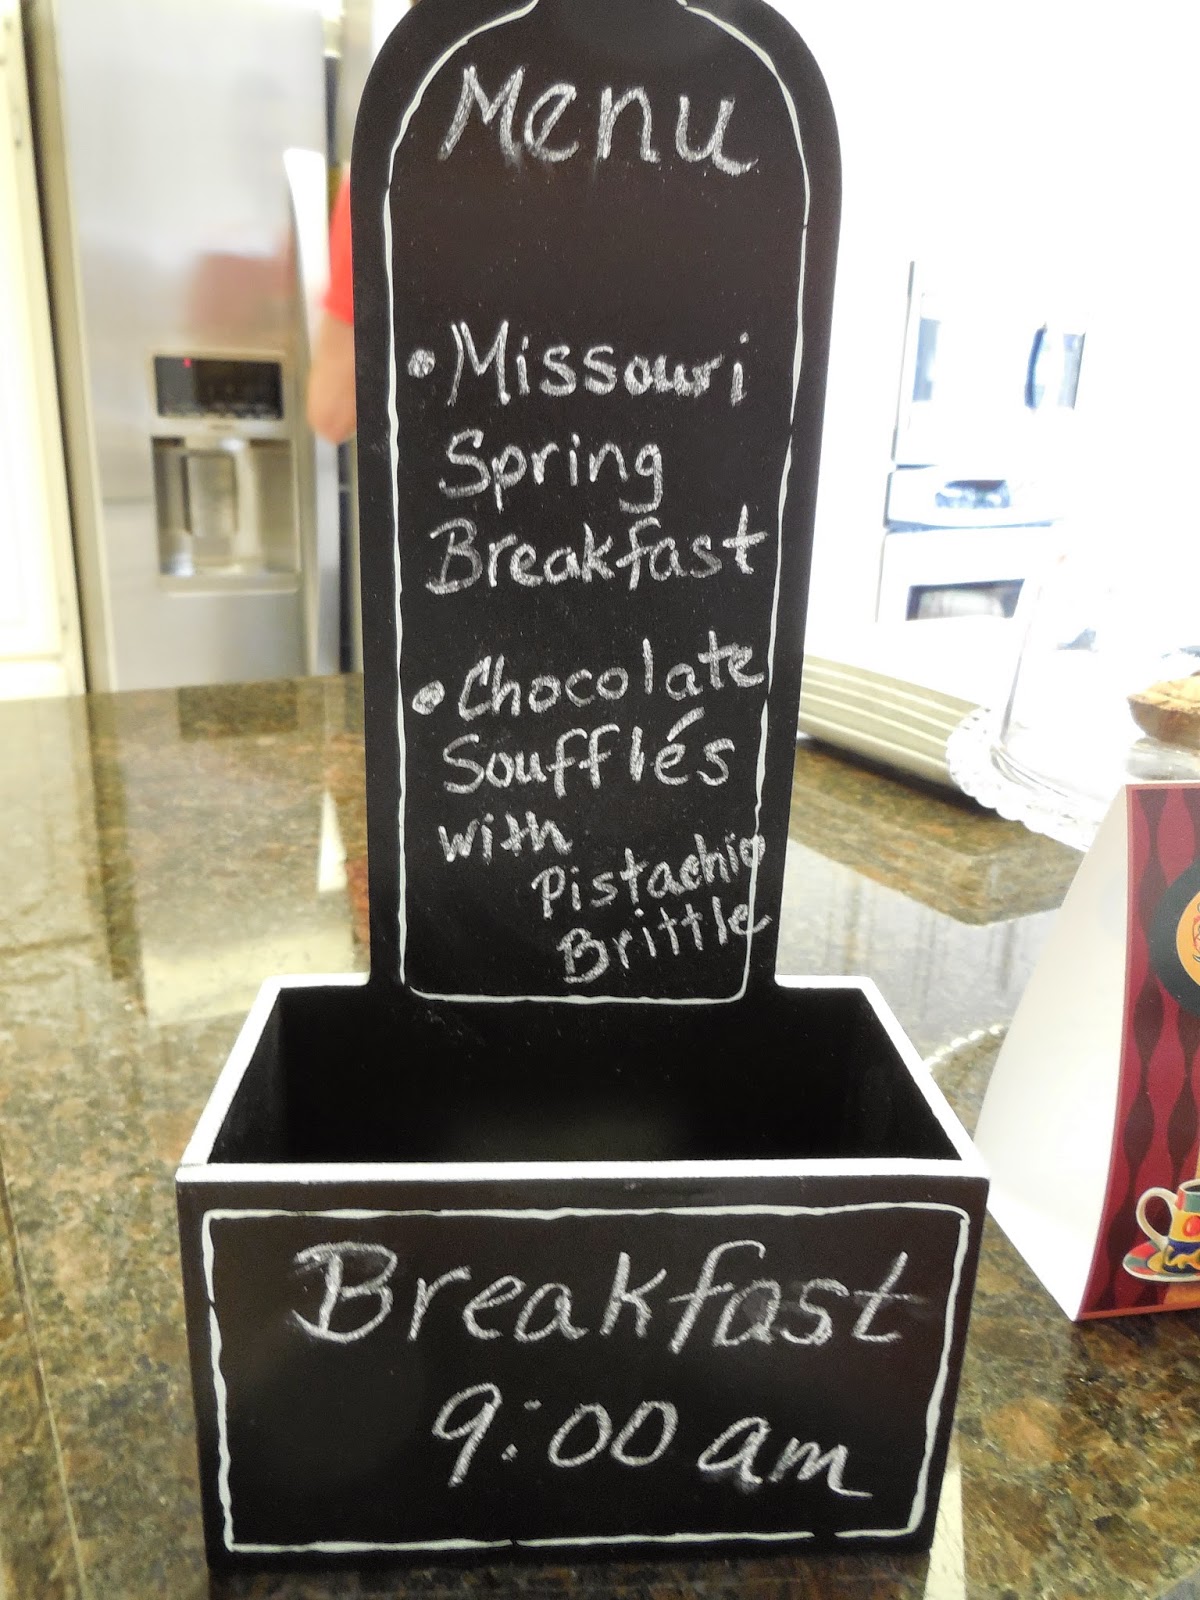 Menu
• Missouri
Spring
Breakfast
• Chocolate
Soufflés
with
Pistachio
Brittle
Breakfast
9:00 am